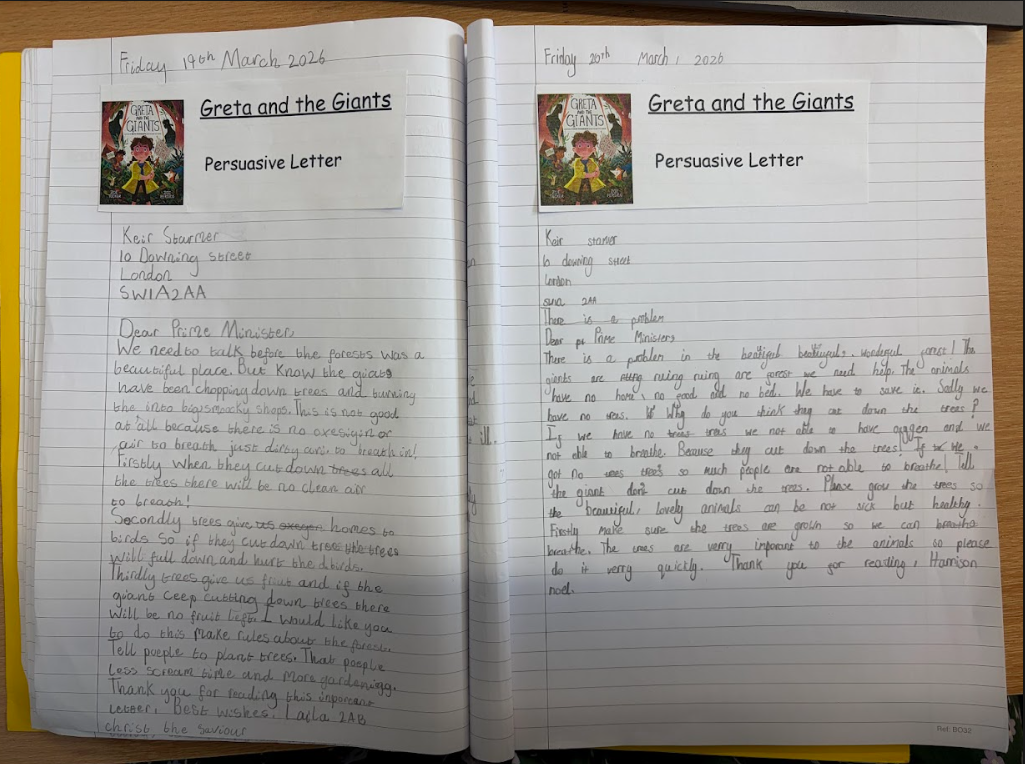 Friday 19th March 2026
GRETA
AND THE
GIANTS
Greta and the Giants
Persuasive Letter
Keir Starmer
10 Downing street
London
SW1A2AA
Dear Prime Minister,
We need to talk before the forests was a
beautiful place. But Know the giats
have been chopping down trees and burning
the into big smocky shops. This is not good
at all because there is no oxesigin or
air to breath just dirty air to breath in!
Firstly when they cut down trees all
the trees there will be no clean air
to breath!
Secondly trees give us oxegen homes to
birds So if they cut down trees the trees
will full down and hurt the dbirds.
Thirdly trees give us fruit and if the
giant ceep cutting down trees there
will be no fruit left. I would like you
to do this make rules about the forest.
Tell poeple to plant trees. That poeple
Less scream time and more gardenigg.
Thank you for reading this inporeant
letter. Best wishes. Laila 2AB
christ the Saviour
Friday 20th March, 2026
GRETA
AND THE
GIANTS
Greta and the Giants
Persuasive Letter
Kair starver
downing street
london
2AA
There is a problem
Dear Prime Ministers
There is a problem in the beatiful wonderful forest! The
giants are ruing ruing are forest we need help. The animals
have no home's no good and no bed. We have to save it. Sadly we
have no trees. Why do you think they cut down the trees?
If we have no trees trees we not able to have oxygen and we
not able to breathe. Because they cut down the trees! If we
got no trees trees so much people are not able to breathe! Tell
the giant don't cut down the trees. Please grow the trees so
the beautiful, lovely animals can be not sick but healthy.
Firstly make sure the trees are grown so we can breatha
breathe. The trees are verry inporant to the animals so please
do it verry quickly. Thank you for reading, Harrison
noel.
Ref: BO52